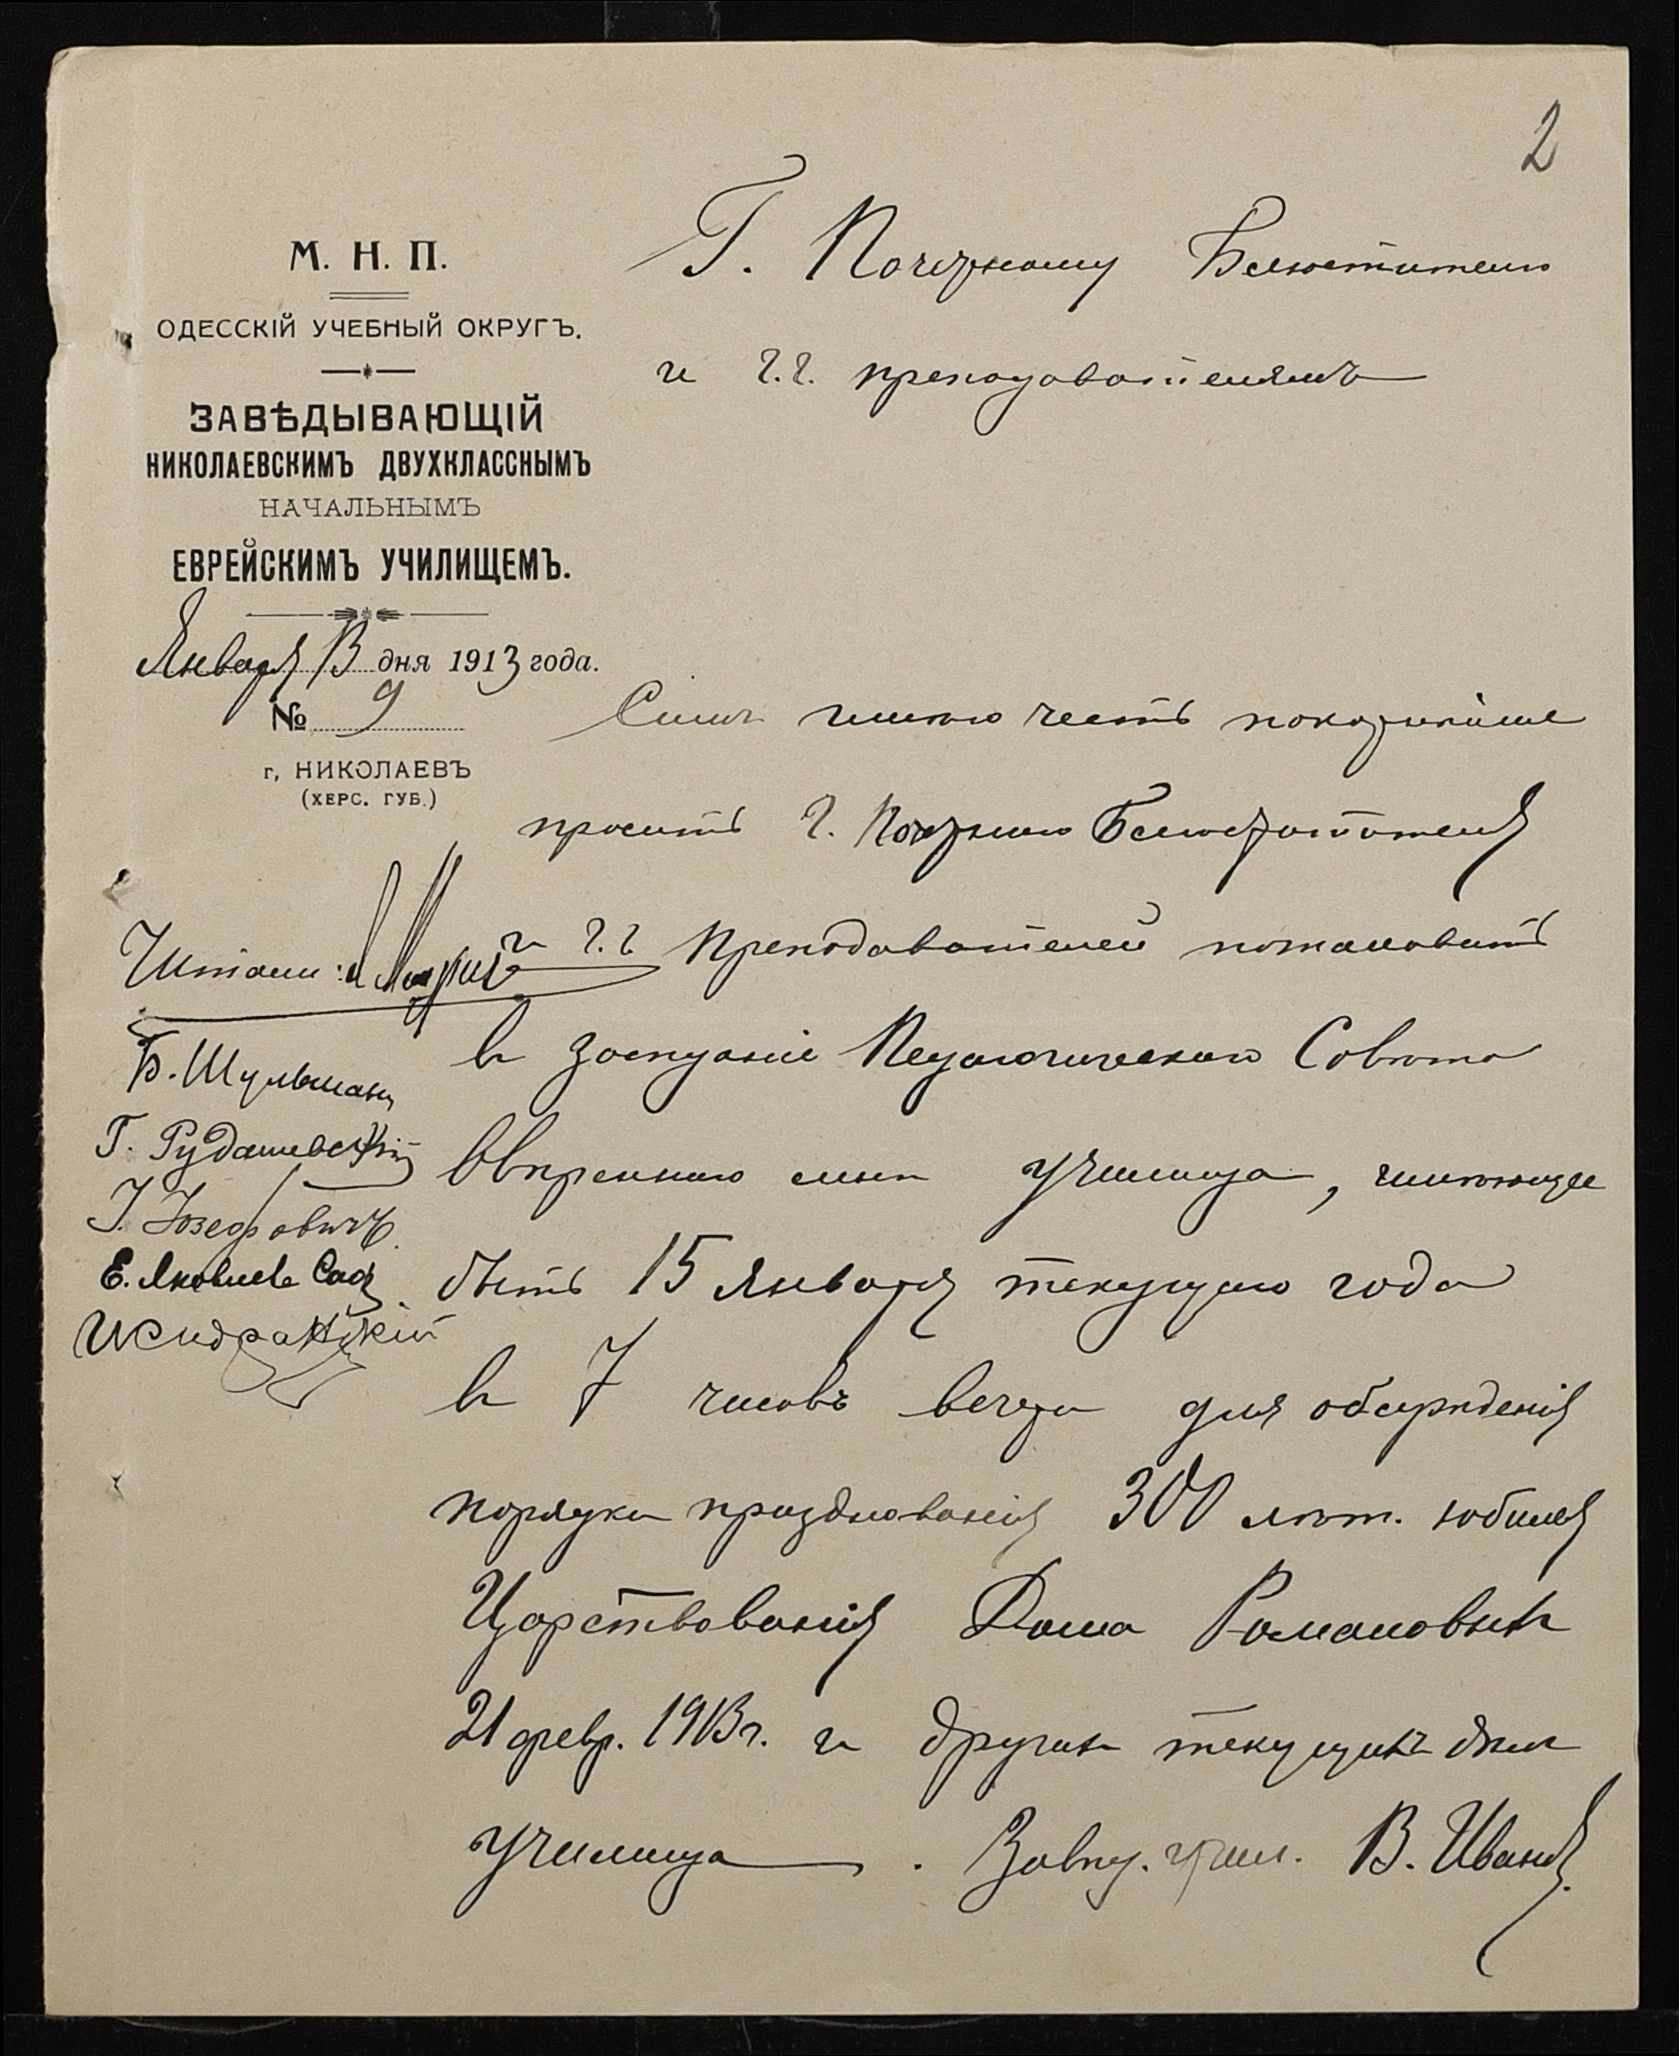 2
М. Н. П.
ОДЕССКІЙ УЧЕБНЫЙ ОКРУГЪ.
ЗАВѢДЫВАЮЩІЙ
НИКОЛАЕВСКИМЪ ДВУХКЛАССНЫМЪ
НАЧАЛЬНЫМЪ
ЕВРЕЙСКИМЪ УЧИЛИЩЕМЪ.
Января 13 дня 1913 года.
№ 9
г. НИКОЛАЕВЪ
(ХЕРС. ГУБ.)
Г. Почетному Блюстителю
и г.г. преподавателямъ
Симъ имѣю честь покорнѣйше
просить г. Почетнаго Блюстителя
и г.г Преподавателей пожаловать
въ засѣданіе Педагогическаго Совѣта
ввѣреннаго мнѣ училища, имѣющее
быть 15 Января текущаго года
въ 7 часовъ вечера для обсужденія
порядка празднованія 300 лѣт. юбилея
Царствованія Дома Романовыхъ
21 февр. 1913 г. и другихъ текущихъ дѣлъ
училища. Завѣд. учил. В. Ивановъ.
Читали:
Б. Шульманъ
Г. Рудашевскій
І. Юзефовичъ.
Е. Яковлева